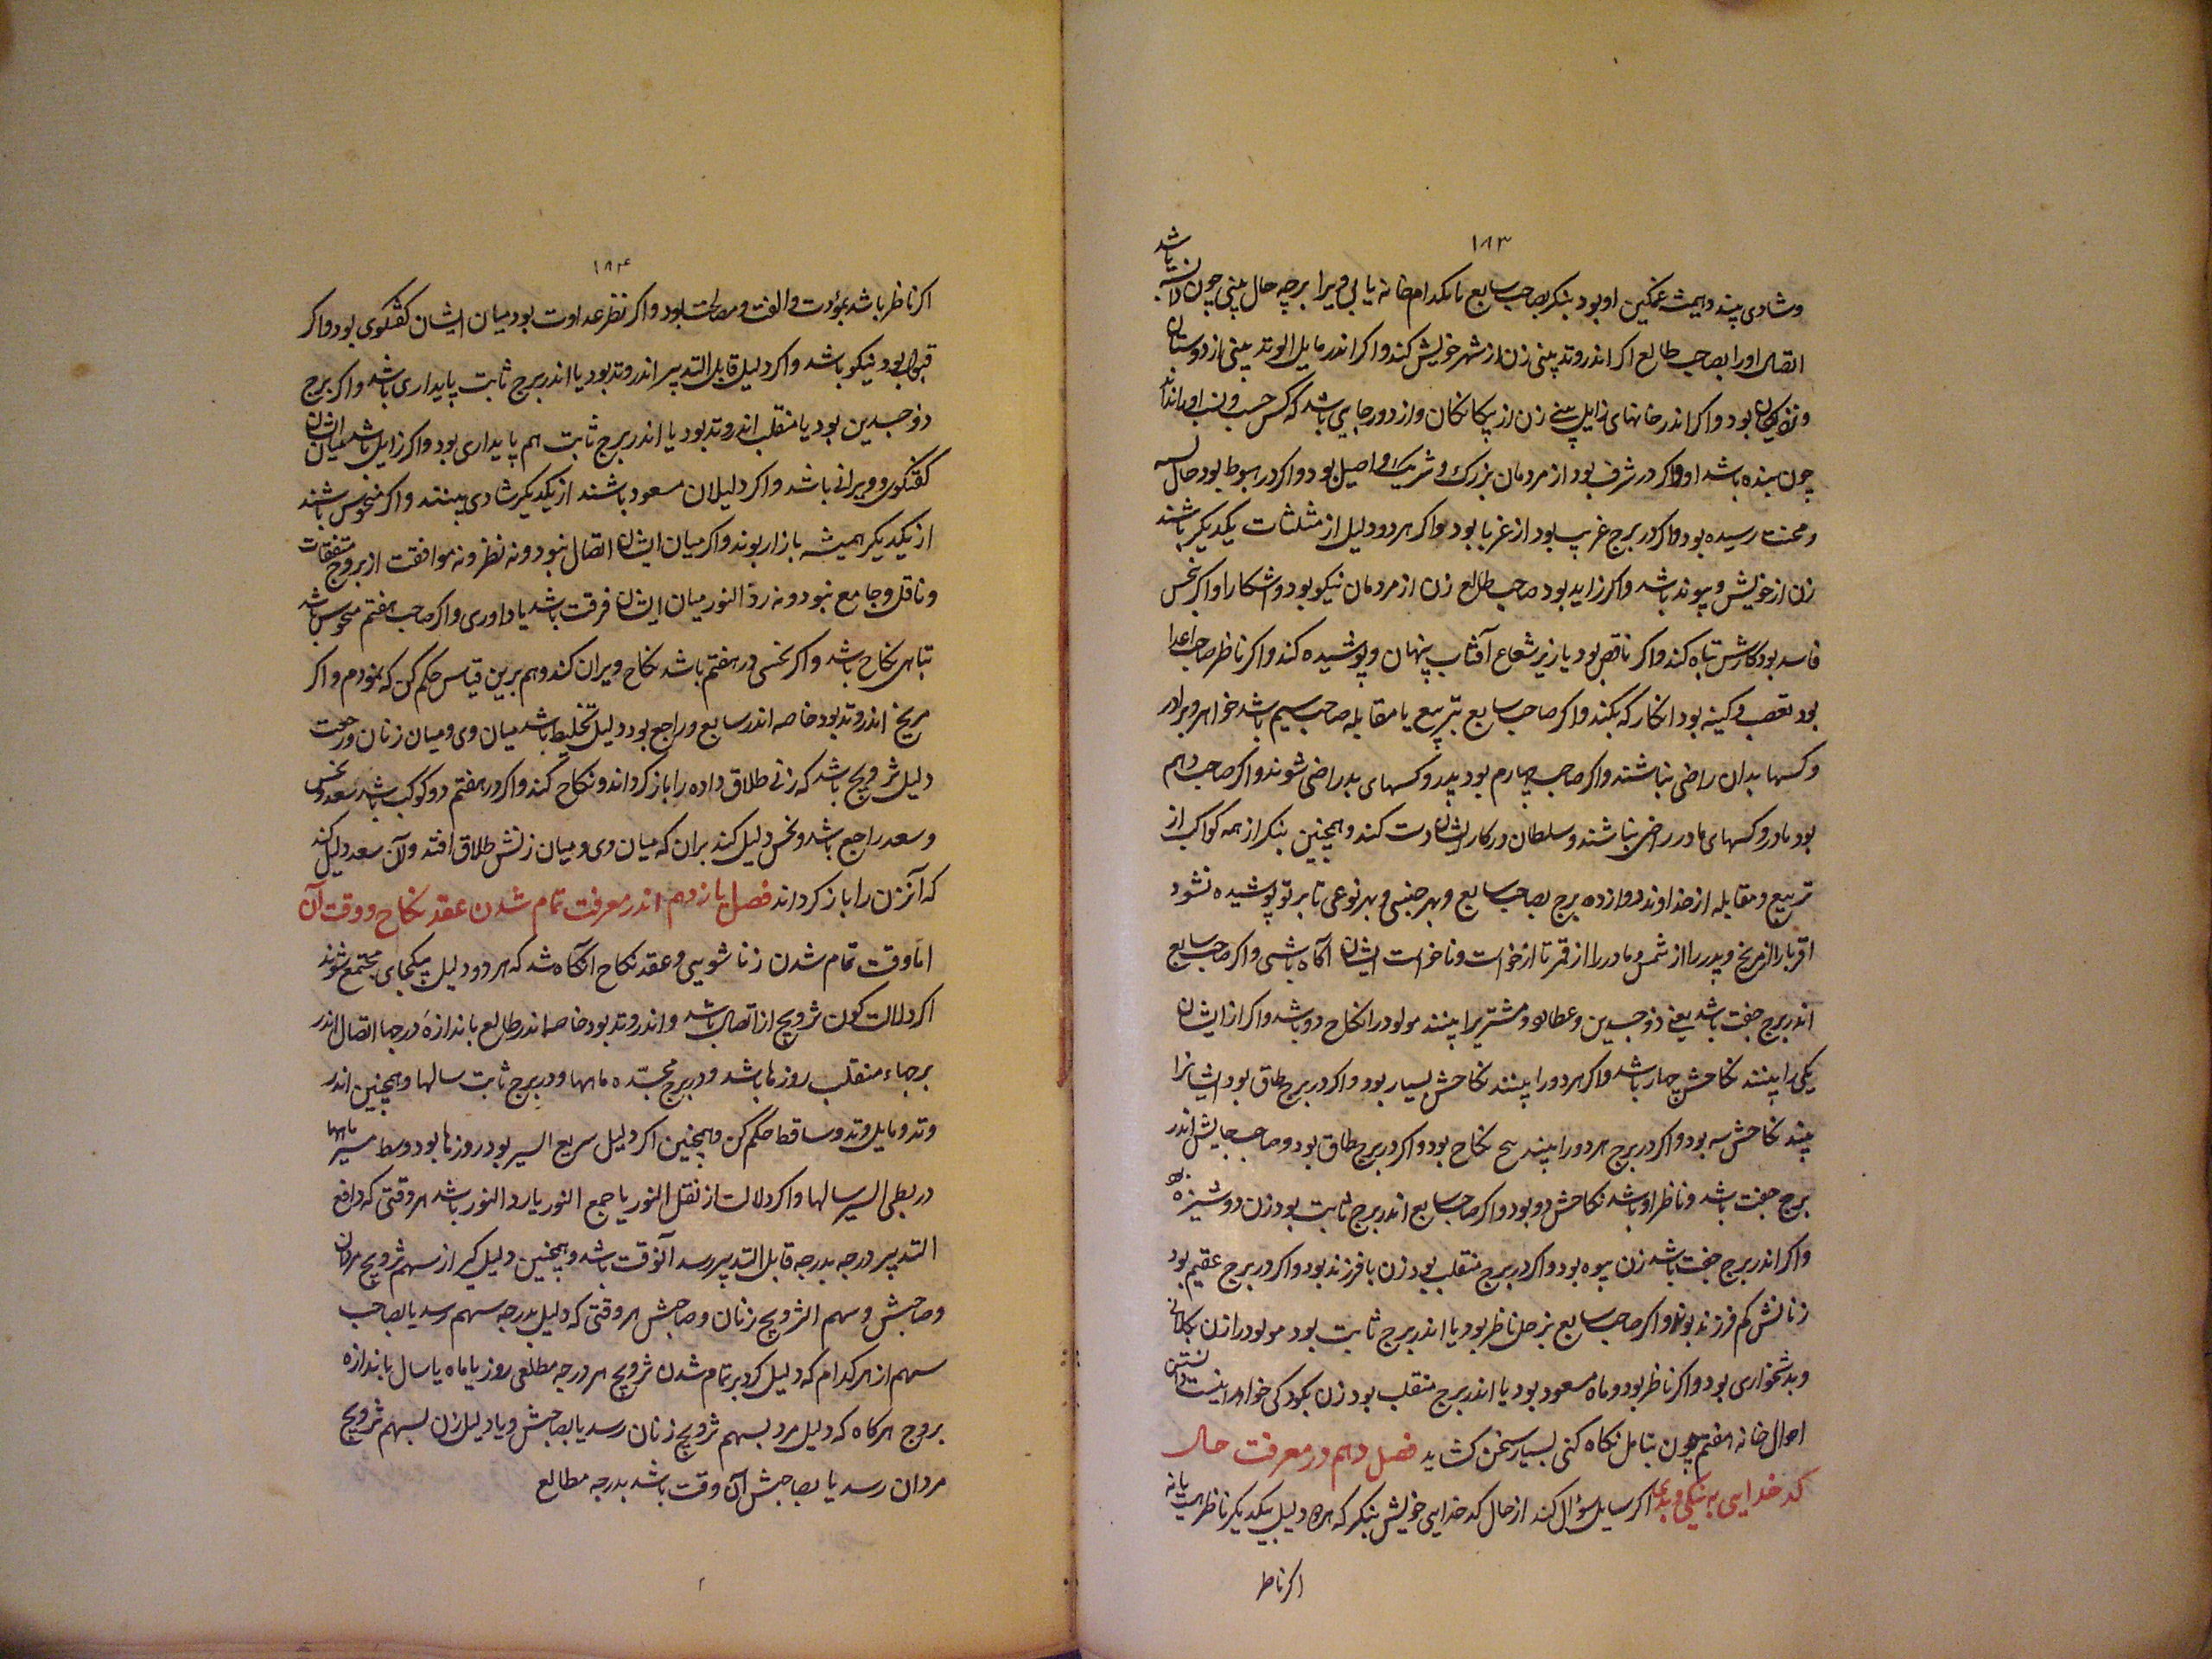 ۱۸۳
وشادی بیند وهمیشه غمگین او بود بنکر بصاحب سابع تا بکدام خانه یابی ویرا بر چه حال بینی چون دانسته باشد
اتصال اورا بصاحب طالع اکر اندر وتد بینی زن از شهر خویش کند واکر اندر مایل الوتد بینی از دوستان
ونزدیکان بود واکر اندر خانهای زایل بینی زن از بیکانکان واز دور جایی باشد که کس حسب ونسب او نداند
چون بنده باشد او واکر در شرف بود از مردمان بزرک وشریف واصیل بود واکر در هبوط بود حال
ومحنت رسیده بود واکر در برج غریب بود از غربا بود واکر هر دو دلیل از مثلثات یکدیکر باشند
زن از خویش وپیوند باشد واکر زاید بود صاحب طالع زن از مردمان نیکو بود وآشکارا واکر نحس
فاسد بود کارش تباه کند واکر ناقص بود یا زیر شعاع آفتاب پنهان وپوشیده کند واکر ناظر صاحب اعدا
بود تعصب وکینه بود انکار که بکند واکر صاحب سابع بتربیع یا مقابله صاحب سیم باشد خواهر وبرادر
وکسها بدان راضی نباشند واکر صاحب چهارم بود پدر وکسهای پدر راضی شوند واکر صاحب دهم
بود مادر وکسهای مادر راضی نباشند وسلطان در کار ایشان دست کند وهمچنین بنکر از همه کواکب از
تربیع ومقابله از خداوند دوازده برج بصاحب سابع وبهر جنسی وبهر نوعی تا بر تو پوشیده نشود
اقربا را از مریخ وپدر را از شمس ومادر را از قمر تا از خواست وناخواست ایشان آکاه باشی واکر صاحب سابع
اندر برج جفت باشد یعنی ذو جسدین وعطارد ومشتری را بینند مولود را نکاح دو باشد واکر از ایشان
یکی را بینند نکاحش چهار باشد واکر هر دو را بینند نکاحش بسیار بود واکر در برج طاق بود ایشانرا
بیند نکاحش سه بود واکر در برج هر دو را بیند نکاح بود واکر در برج طاق بود وصاحب جایش اندر
برج جفت باشد وناظر او باشد نکاحش دو بود واکر صاحب سابع اندر برج ثابت بود زن دوشیزه بود
واکر اندر برج جفت باشد زن بیوه بود واکر در برج منقلب بود زن با فرزند بود واکر در برج عقیم بود
زنانش کم فرزند بوند واکر صاحب سابع بزحل ناظر بود یا اندر برج ثابت بود مولود را زن بکلانی
وبدشخواری بود واکر ناظر بود وماه مسعود بود یا اندر برج منقلب بود زن بکودکی خواهد اینست دانستن
احوال خانه هفتم چون بتامل نکاه کنی بسیار سخن کشاید فصل دهم در معرفت حال
کدخدایی به نیکی وبدی اکر سایل سؤال کند از حال کدخدایی خویش بنکر که هر دو دلیل بیکدیکر ناظر هست یا نه
اکر ناظر
۱۸۴
اکر ناظر باشد بمودت والفت ومصالحت بود واکر نظر عداوت بود میان ایشان کفتکوی بود واکر
قبول بود نیکو باشد واکر دلیل قابل التدبیر اندر وتد بود یا اندر برج ثابت پایداری باشد واکر برج
ذو جسدین بود یا منقلب اندر وتد بود یا اندر برج ثابت هم پایداری بود واکر زایل باشد میان ایشان
کفتکوی وویرانی باشد واکر دلیلان مسعود باشند از یکدیکر شادی بینند واکر منحوس باشند
از یکدیکر همیشه بازار بوند واکر میان ایشان اتصال نبود ونه نظر ونه موافقت از بروج متفقات
وناقل وجامع نبود ونه ردّ النور میان ایشان فرقت باشد یا داوری واکر صاحب هفتم منحوس باشد
تباهی نکاح باشد واکر نحسی در هفتم باشد نکاح ویران کند وهم برین قیاس حکم کن که نمودم واکر
مریخ اندر وتد بود خاصه اندر سابع وراجع بود دلیل تخلیط باشد میان وی ومیان زنان ورجعت
دلیل تزویج باشد که زنی طلاق داده را باز کرداند ونکاح کند واکر در هفتم دو کوکب باشد سعد ونحس
وسعد راجع باشد ونحس دلیل کند بران که میان وی ومیان زنش طلاق افتد وآن سعد دلیل کند
که آنزن را باز کرداند فصل یازدهم اندر معرفت تمام شدن عقد نکاح ووقت آن
امّا وقت تمام شدن زناشویی وعقد نکاح آنکاه باشد که هر دو دلیل بیکجای مجتمع شوند
اکر دلالت کون تزویج از اتصال باشد واندر وتد بود خاصه اندر طالع باندازهٔ درجها اتصال اندر
برجهاء منقلب روزها باشد ودر برج مجسّده ماهها ودر برج ثابت سالها وهمچنین اندر
وتد ومایل وتد وساقط حکم کن وهمچنین اکر دلیل سریع السیر بود روزها بود ووسط مسیر ماهها
در بطی السیر سالها واکر دلالت از نقل النور یا جمع النور یا رد النور باشد هر وقتی که دافع
التدبیر درجه بدرجه قابل التدبیر رسد آنوقت باشد وهمچنین دلیل کیر از سهم تزویج مردان
وصاحبش وسهم التزویج زنان وصاحبش هر وقتی که دلیل بدرجه سهم رسد یا بصاحب
سهم از هر کدام که دلیل کرد بر تمام شدن تزویج هر درجه مطلعی روز یا ماه یا سال باندازه
بروج هر کاه که دلیل مرد بسهم تزویج زنان رسد یا بصاحبش ویا دلیل زن بسهم تزویج
مردان رسد یا بصاحبش آن وقت باشد بدرجه مطالع